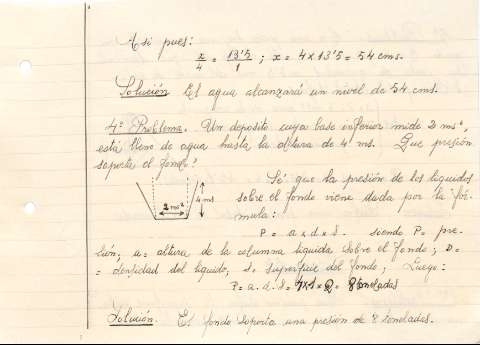 Asi pues:
x/4 = 13'5/1 ; x = 4 x 13'5 = 54 cms.
Solución El agua alcanzará un nivel de 54 cms.
4º Problema. Un deposito cuya base inferior mide 2 ms²,
está lleno de agua hasta la altura de 4 ms. Que presión
soporta el fondo?
2 ms²
4 ms
Sé que la presión de los liquidos
sobre el fondo viene dada por la fór-
mula:
P = a x d x s. siendo P = pre-
sión; a = altura de la columna liquida sobre el fondo; D =
= densidad del liquido; s. superficie del fondo; Luego:
P = a. d. s = 4x1x2 = 8 toneladas
Solución. El fondo soporta una presión de 8 toneladas.